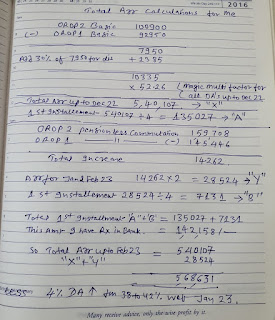 2016
Total Arr Calculations for me
OROP2 Basic 100900
(-) OROP1 Basic 92950
7950
Add 30% of 7950 for dis + 2385
10335
x 52.26 (Magic multi factor for all DA's upto Dec 22
Total Arr upto Dec 22 5,40,107 → "X"
1st Installement 540107 ÷ 4 = 135027 → "A"
OROP 2 pension less Commutation 159708
OROP 1 — 11 — (-) 145446
Total Increase 14262
Arr for Jan & Feb 23 14262 x 2 = 28524 → "Y"
1st Installment 28524 ÷ 4 = 7131 → "B"
Total 1st Installment "A"+"B" = 135027 + 7131
This Amt I have Rx in Bank. = 142158/-
So Total Arr upto Feb 23 = 540107
"X" + "Y" 28524
568631
Less 4% DA ↑ from 38 to 42% w.e.f Jan 23.
Many receive advice, only the wise profit by it.